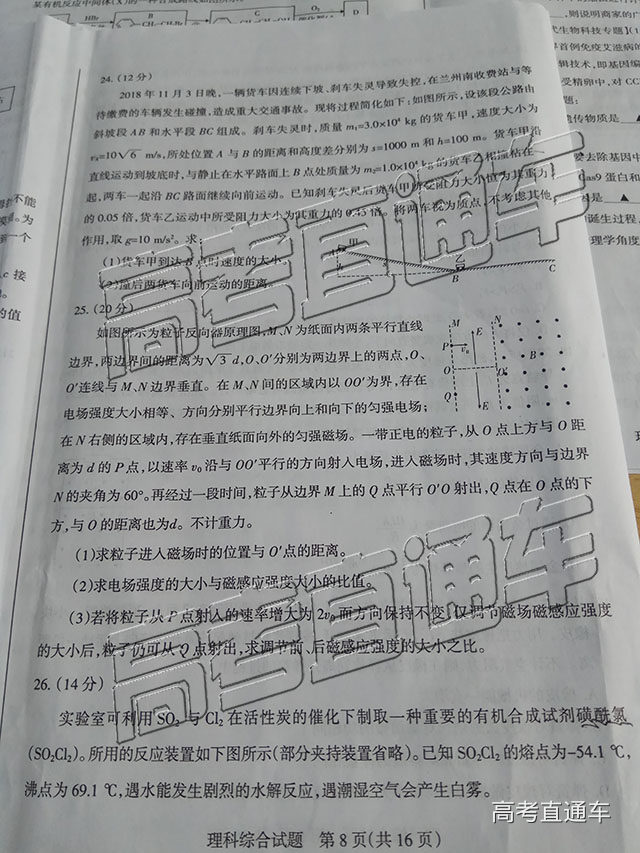 24.(12分)
2018年11月3日晚,一辆货车因连续下坡、刹车失灵导致失控,在兰州南收费站与等
待缴费的车辆发生碰撞,造成重大交通事故。现将过程简化如下:如图所示,设该段公路由
斜坡段AB和水平段BC组成。刹车失灵时,质量m₁=3.0×10⁴ kg的货车甲,速度大小为
v₀=10√6 m/s,所处位置A与B的距离和高度差分别为s=1000 m和h=100 m。货车甲沿
直线运动到坡底时,与静止在水平路面上B点处质量为m₂=1.0×10⁴ kg的货车乙相撞粘在一
起,两车一起沿BC路面继续向前运动。已知刹车失灵后货车甲所受阻力大小恒为其重力
的0.05倍,货车乙运动中所受阻力大小为其重力的0.45倍。将两车视为质点,不考虑其他
作用,取g=10 m/s²。求:
(1)货车甲到达B点时速度的大小。
(2)撞后两货车向前运动的距离。
甲
A
h
乙
B
C
25.(20分)
如图所示为粒子反向器原理图,M、N为纸面内两条平行直线
边界,两边界间的距离为√3 d,O、O′分别为两边界上的两点,O、
O′连线与M、N边界垂直。在M、N间的区域内以OO′为界,存在
电场强度大小相等、方向分别平行边界向上和向下的匀强电场;
在N右侧的区域内,存在垂直纸面向外的匀强磁场。一带正电的粒子,从O点上方与O距
离为d的P点,以速率v₀沿与OO′平行的方向射入电场,进入磁场时,其速度方向与边界
N的夹角为60°。再经过一段时间,粒子从边界M上的Q点平行O′O射出,Q点在O点的下
方,与O的距离也为d。不计重力。
M
E
N
P
v₀
B
O
O′
Q
E
(1)求粒子进入磁场时的位置与O′点的距离。
(2)求电场强度的大小与磁感应强度大小的比值。
(3)若将粒子从P点射入的速率增大为2v₀而方向保持不变,仅调节磁场磁感应强度
的大小后,粒子仍可从Q点射出,求调节前、后磁感应强度的大小之比。
26.(14分)
实验室可利用SO₂与Cl₂在活性炭的催化下制取一种重要的有机合成试剂磺酰氯
(SO₂Cl₂)。所用的反应装置如下图所示(部分夹持装置省略)。已知SO₂Cl₂的熔点为-54.1℃,
沸点为69.1℃,遇水能发生剧烈的水解反应,遇潮湿空气会产生白雾。
理科综合试题 第8页(共16页)
高考直通车
高考直通车
高考直通车